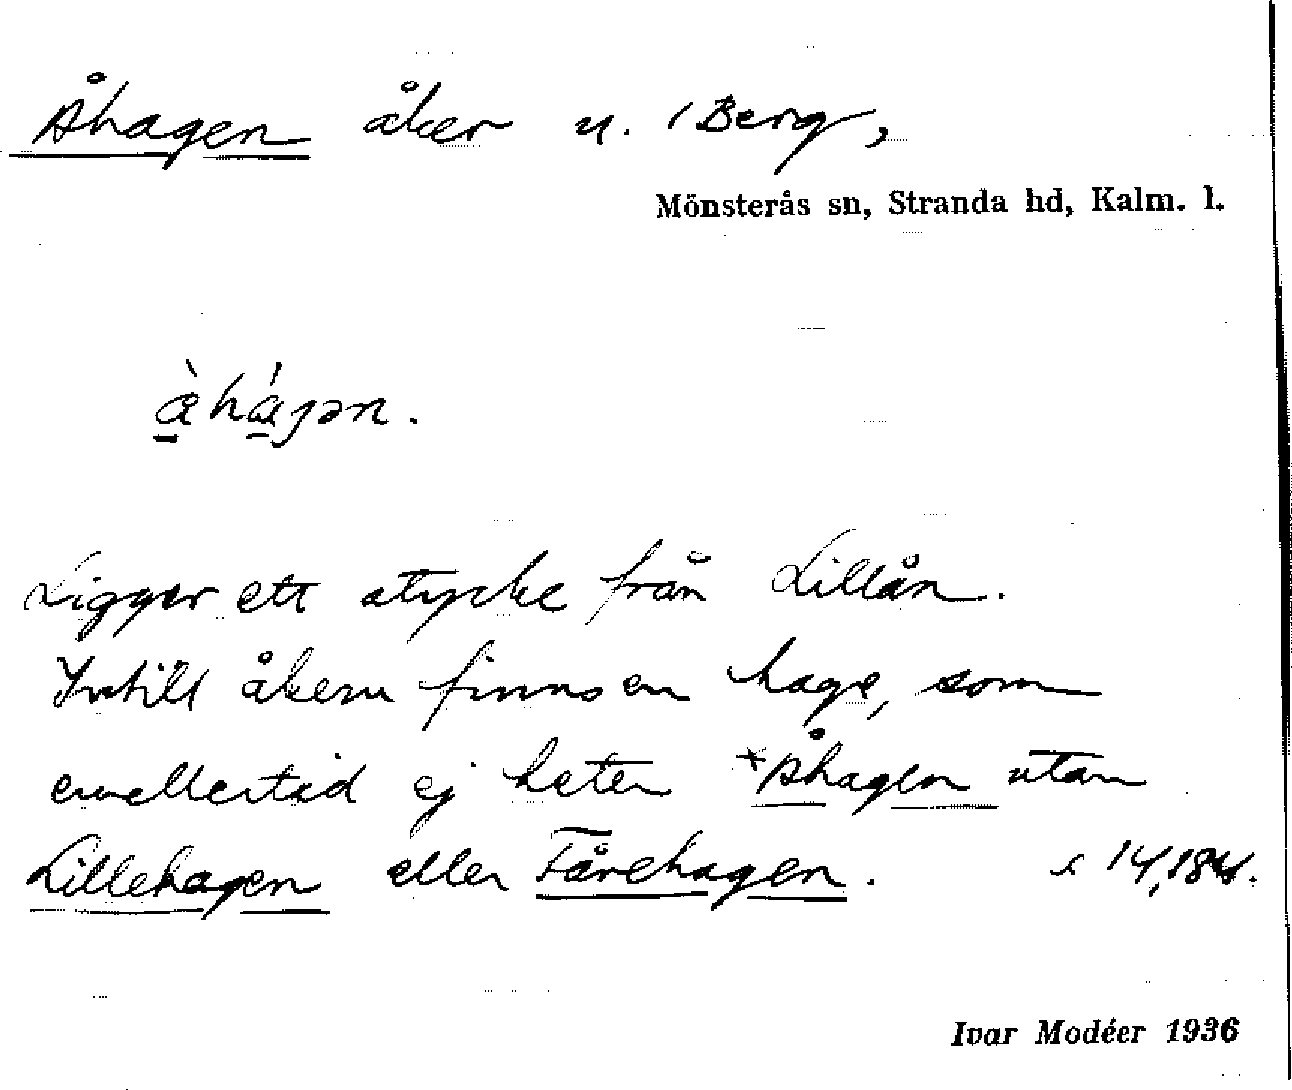 Åhagen åker u. Berg,
Mönsterås sn, Stranda hd, Kalm. l.
Ligger ett stycke från Lillån.
Intill åkern finns en hage, som
emellertid ej heter *Åhagen utan
Lillehagen eller Fårehagen.
Ivar Modéer 1936